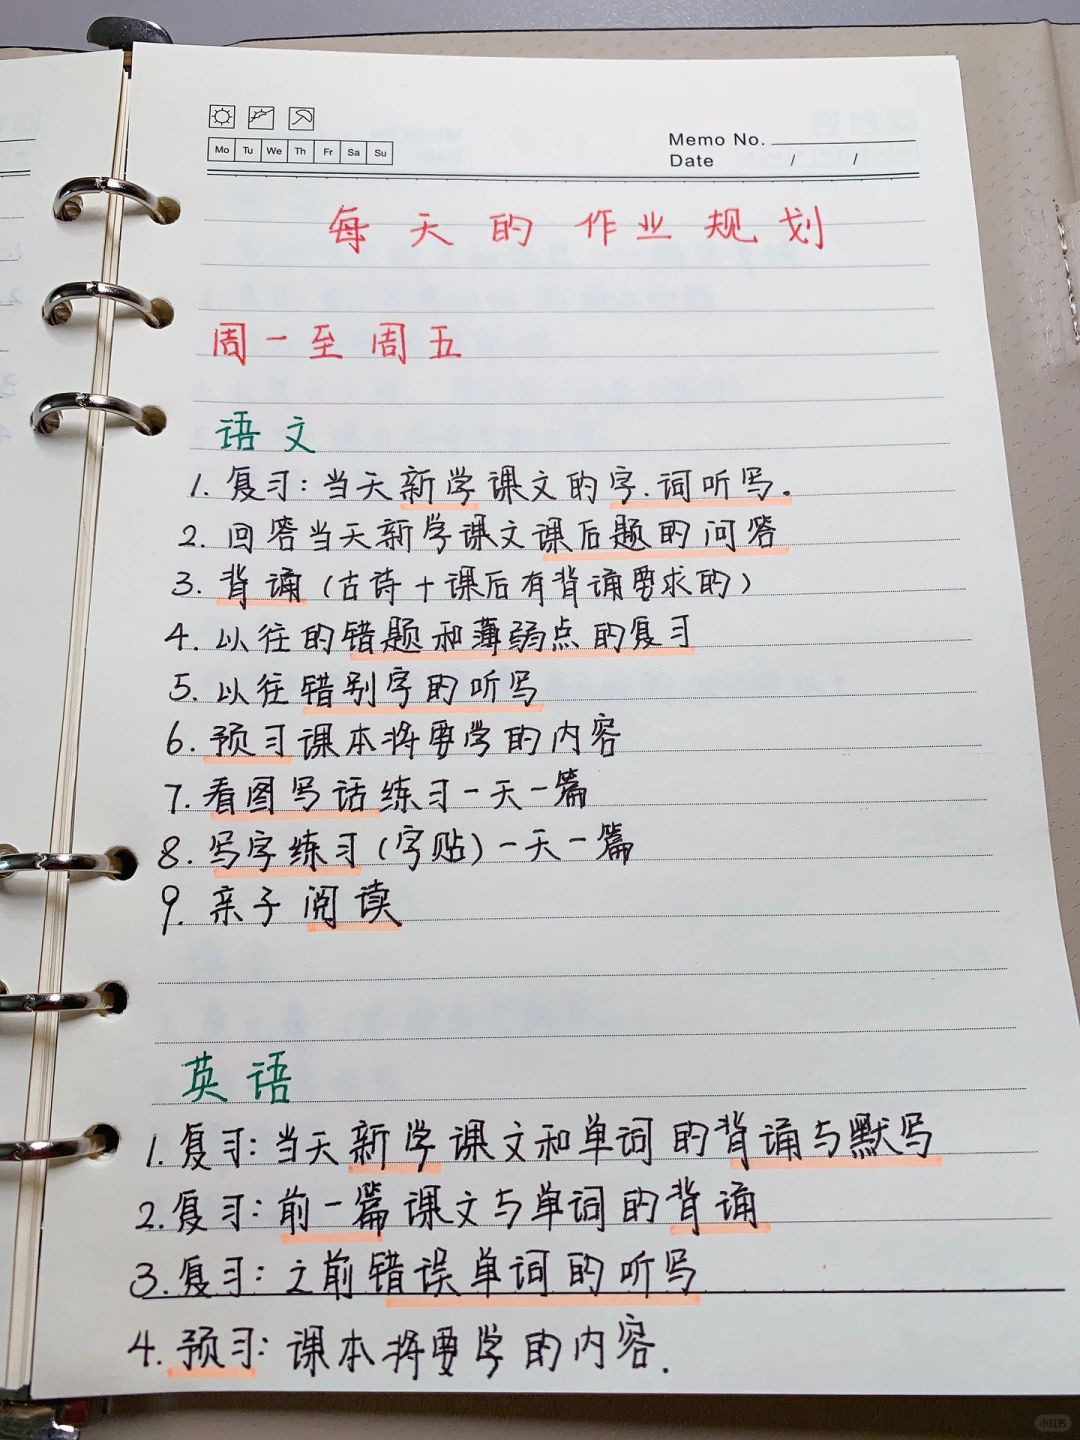 Mo Tu We Th Fr Sa Su
Memo No.
Date / /
每天的作业规划
周一至周五
语文
1. 复习：当天新学课文的字.词听写。
2. 回答当天新学课文课后题的问答
3. 背诵（古诗+课后有背诵要求的）
4. 以往的错题和薄弱点的复习
5. 以往错别字的听写
6. 预习课本将要学的内容
7. 看图写话练习一天一篇
8. 写字练习(字贴)一天一篇
9. 亲子阅读
英语
1. 复习：当天新学课文和单词的背诵与默写
2. 复习：前一篇课文与单词的背诵
3. 复习：之前错误单词的听写
4. 预习：课本将要学的内容.
小红书